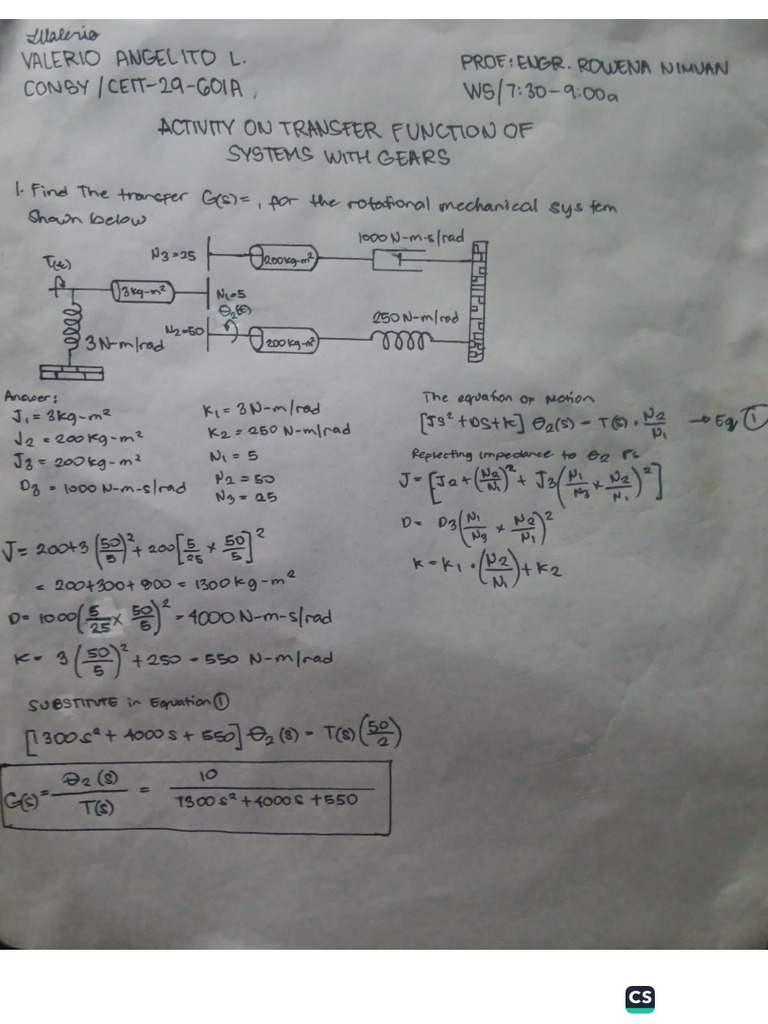 LValerio
VALERIO ANGELITO L.
PROF: ENGR. ROWENA NIMUAN
CONBY / CEIT-29-601A
WS/7:30-9:00a
ACTIVITY ON TRANSFER FUNCTION OF
SYSTEMS WITH GEARS
1. Find The transfer G(s)=, for the rotational mechanical system
Shown below
1000 N-m-s/rad
T(t)
N3=25
200kg-m²
3kg-m²
N1=5
θ2(t)
250 N-m/rad
N2=50
3N-m/rad
200kg-m²
Answer:
J1 = 3kg-m²
J2 = 200kg-m²
J3 = 200kg-m²
D3 = 1000 N-m-s/rad
K1 = 3 N-m/rad
K2 = 250 N-m/rad
N1 = 5
N2 = 50
N3 = 25
The equation of Motion
[Js² + DS + K] θ2(s) = T(s) · N2/N1 → Eq ①
Replecting impedance to θ2
J = [J2 + (N2/N1)² + J3(N1/N3 × N2/N1)²]
D = D3(N1/N3 × N2/N1)²
K = K1 · (N2/N1) + K2
J = 200+3(50/5)² + 200[5/25 × 50/5]²
= 200+300+800 = 1300 kg-m²
D = 1000(5/25 × 50/5)² = 4000 N-m-s/rad
K = 3(50/5)² + 250 = 550 N-m/rad
SUBSTITUTE in Equation ①
[1300s² + 4000s + 550] θ2(s) = T(s)(50/2)
G(s) = θ2(s)/T(s) = 10/1300s² + 4000s + 550
CS